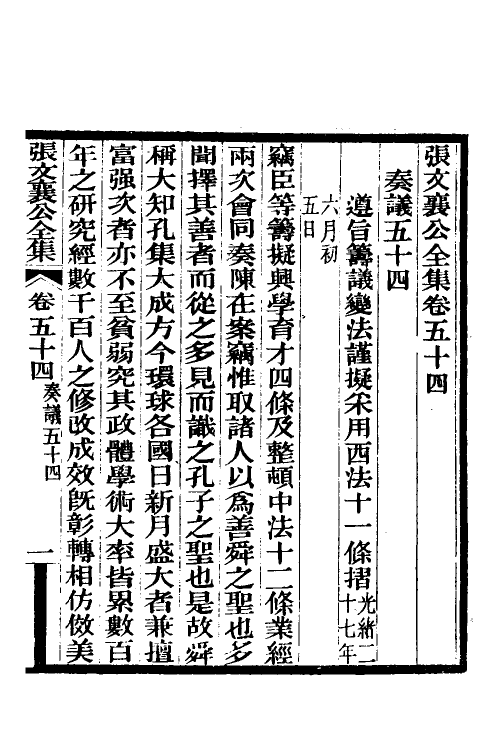 張文襄公全集卷五十四
奏議五十四
遵旨籌議變法謹擬采用西法十一條摺光緒二十七年
六月初五日
竊臣等籌擬興學育才四條及整頓中法十二條業經
兩次會同奏陳在案竊惟取諸人以爲善舜之聖也多
聞擇其善者而從之多見而識之孔子之聖也是故舜
稱大知孔集大成方今環球各國日新月盛大者兼擅
富强次者亦不至貧弱究其政體學術大率皆累數百
年之研究經數千百人之修改成效旣彰轉相仿傚美
張文襄公全集 卷五十四 奏議五十四 一